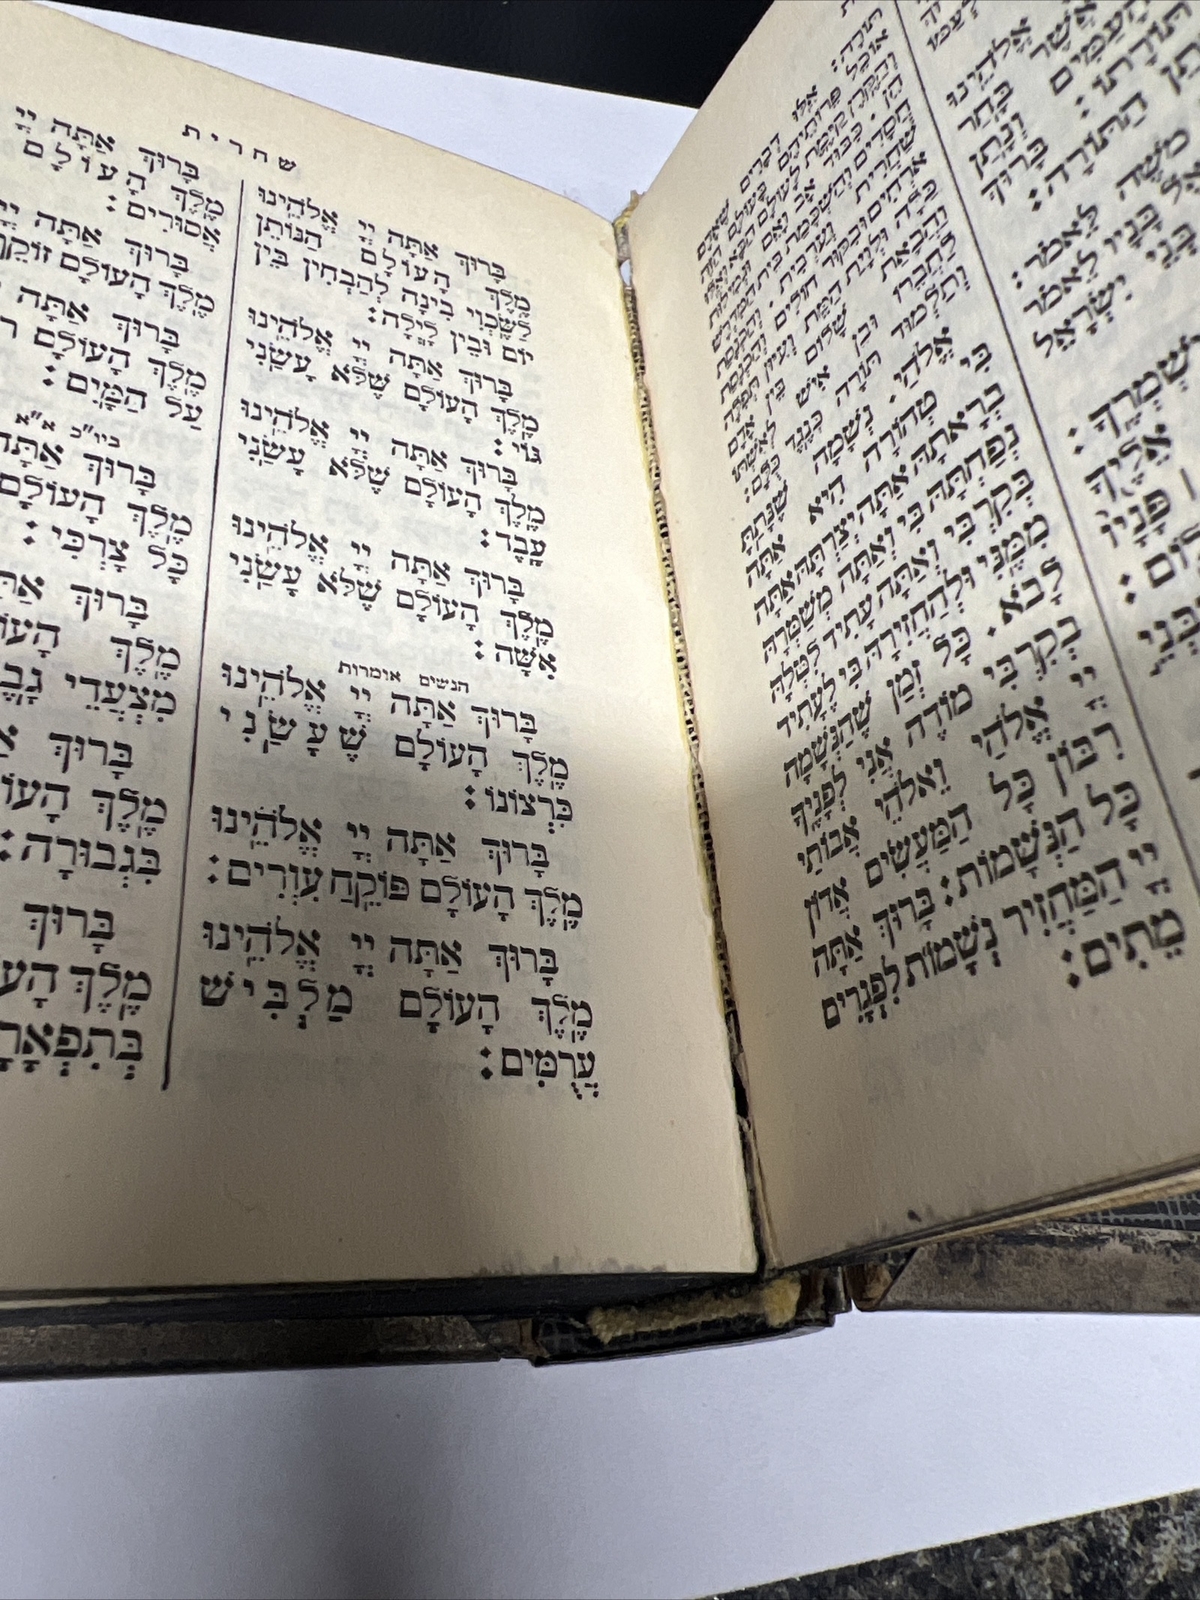 אֱלֹהֵינוּ
אֲשֶׁר בָּחַר
הָעַמִּים וְנָתַן
תּוֹרָתוֹ: בָּרוּךְ
הַתּוֹרָה:
מֹשֶׁה לֵּאמֹר:
בָּנָיו לֵאמֹר
בְּנֵי יִשְׂרָאֵל
אֵלֶיךָ
פָּנָיו
תּוֹרָה:
אֵלּוּ דְבָרִים שֶׁאָדָם
אוֹכֵל פֵּרוֹתֵיהֶם בָּעוֹלָם הַזֶּה
וְהַקֶּרֶן קַיֶּמֶת לָעוֹלָם הַבָּא וְאֵלּוּ
הֵן. כִּבּוּד אָב וָאֵם וּגְמִילוּת
חֲסָדִים וְהַשְׁכָּמַת בֵּית הַמִּדְרָשׁ
שַׁחֲרִית וְעַרְבִית. וְהַכְנָסַת
אוֹרְחִים וּבִקּוּר חוֹלִים וְהַכְנָסַת
כַּלָּה וּלְוָיַת הַמֵּת וְעִיּוּן תְּפִלָּה
וַהֲבָאַת שָׁלוֹם בֵּין אָדָם
לַחֲבֵרוֹ וּבֵין אִישׁ לְאִשְׁתּוֹ
וְתַלְמוּד תּוֹרָה כְּנֶגֶד כֻּלָּם:
אֱלֹהַי. נְשָׁמָה שֶׁנָּתַתָּ
בִּי טְהוֹרָה הִיא אַתָּה
בְרָאתָהּ אַתָּה יְצַרְתָּהּ אַתָּה
נְפַחְתָּהּ בִּי וְאַתָּה מְשַׁמְּרָהּ
בְּקִרְבִּי וְאַתָּה עָתִיד לִטְּלָהּ
מִמֶּנִּי וּלְהַחֲזִירָהּ בִּי לֶעָתִיד
לָבֹא. כָּל זְמַן שֶׁהַנְּשָׁמָה
בְקִרְבִּי מוֹדֶה אֲנִי לְפָנֶיךָ
יְיָ אֱלֹהַי וֵאלֹהֵי אֲבוֹתַי
רִבּוֹן כָּל הַמַּעֲשִׂים אֲדוֹן
כָּל הַנְּשָׁמוֹת: בָּרוּךְ אַתָּה
יְיָ הַמַּחֲזִיר נְשָׁמוֹת לִפְגָרִים
מֵתִים:
שחרית
בָּרוּךְ אַתָּה יְיָ אֱלֹהֵינוּ
מֶלֶךְ הָעוֹלָם הַנּוֹתֵן
לַשֶּׂכְוִי בִינָה לְהַבְחִין בֵּין
יוֹם וּבֵין לָיְלָה:
בָּרוּךְ אַתָּה יְיָ אֱלֹהֵינוּ
מֶלֶךְ הָעוֹלָם שֶׁלֹּא עָשַׂנִי
גּוֹי:
בָּרוּךְ אַתָּה יְיָ אֱלֹהֵינוּ
מֶלֶךְ הָעוֹלָם שֶׁלֹּא עָשַׂנִי
עָבֶד:
בָּרוּךְ אַתָּה יְיָ אֱלֹהֵינוּ
מֶלֶךְ הָעוֹלָם שֶׁלֹּא עָשַׂנִי
אִשָּׁה:
הנשים אומרות
בָּרוּךְ אַתָּה יְיָ אֱלֹהֵינוּ
מֶלֶךְ הָעוֹלָם שֶׁעָשַׂנִי
כִּרְצוֹנוֹ:
בָּרוּךְ אַתָּה יְיָ אֱלֹהֵינוּ
מֶלֶךְ הָעוֹלָם פּוֹקֵחַ עִוְרִים:
בָּרוּךְ אַתָּה יְיָ אֱלֹהֵינוּ
מֶלֶךְ הָעוֹלָם מַלְבִּישׁ
עֲרֻמִּים:
בָּרוּךְ אַתָּה יְיָ
מֶלֶךְ הָעוֹלָם
אֲסוּרִים:
בָּרוּךְ אַתָּה יְיָ
מֶלֶךְ הָעוֹלָם
בָּרוּךְ אַתָּה
מֶלֶךְ הָעוֹלָם
עַל הַמָּיִם:
ביו"כ א"א
בָּרוּךְ אַתָּה
מֶלֶךְ הָעוֹלָם
כָּל צָרְכִּי:
בָּרוּךְ
מֶלֶךְ
מִצְעֲדֵי
בָּרוּךְ
מֶלֶךְ
בִּגְבוּרָה:
בָּרוּךְ
מֶלֶךְ